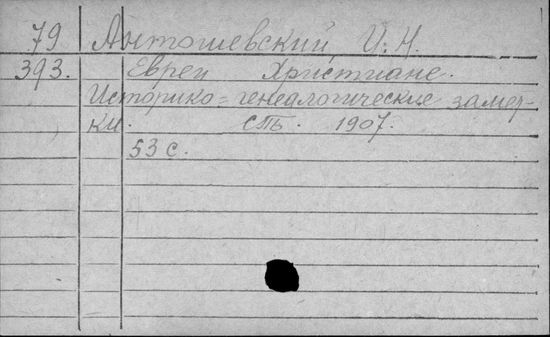 79 Антошевский, И. Н.
393. Евреи Христиане.
Историко=генеалогические замет-
ки. СПБ. 1907.
53 с.